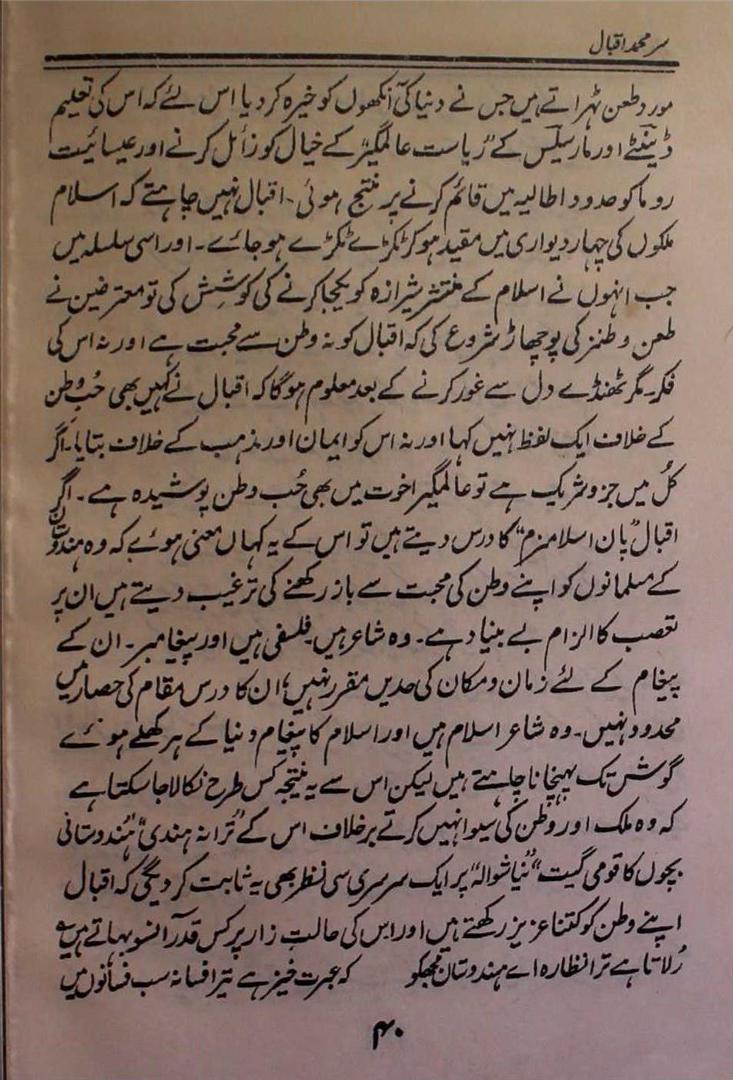 سر محمد اقبال
مورد طعن ٹہراتے ہیں جس نے دنیا کی آنکھوں کو خیرہ کر دیا اس لئے کہ اس کی تعلیم
ڈینٹے اور مارسیلس کے "ریاست عالمگیر" کے خیال کو زائل کرنے اور عیسائیت
روما کو حدود اطالیہ میں قائم کرنے پر منتج ہوئی۔ اقبال نہیں چاہتے کہ اسلام
ملکوں کی چہار دیواری میں مقید ہو کر ٹکڑے ٹکڑے ہو جائے۔ اور اسی سلسلہ میں
جب انہوں نے اسلام کے منتشر شیرازہ کو یکجا کرنے کی کوشش کی تو معترضین نے
طعن و طنز کی بوچھاڑ شروع کی کہ اقبال کو نہ وطن سے محبت ہے اور نہ اس کی
فکر۔ مگر ٹھنڈے دل سے غور کرنے کے بعد معلوم ہوگا کہ اقبال نے کہیں بھی حُب وطن
کے خلاف ایک لفظ نہیں کہا اور نہ اس کو ایمان اور مذہب کے خلاف بتایا۔ اگر
کُل میں جزو شریک ہے تو عالمگیر اخوت میں بھی حُب وطن پوشیدہ ہے۔ اگر
اقبال "پان اسلامزم" کا درس دیتے ہیں تو اس کے یہ کہاں معنی ہوئے کہ وہ ہندوستان
کے مسلمانوں کو اپنے وطن کی محبت سے باز رکھنے کی ترغیب دیتے ہیں ان پر
تعصب کا الزام بے بنیاد ہے۔ وہ شاعر ہیں۔ فلسفی ہیں اور پیغامبر۔ ان کے
پیغام کے لئے زمان و مکان کی حدیں مقرر نہیں؛ ان کا درس مقام کی حصار میں
محدود نہیں۔ وہ شاعر اسلام ہیں اور اسلام کا پیغام دنیا کے ہر کھلے ہوئے
گوش تک پہنچانا چاہتے ہیں لیکن اس سے یہ نتیجہ کس طرح نکالا جا سکتا ہے
کہ وہ ملک اور وطن کی سیوا نہیں کرتے برخلاف اس کے "ترانہ ہندی" "ہندوستانی
بچوں کا قومی گیت" "نیا شوالہ" پر ایک سرسری سی نظر بھی یہ ثابت کر دیگی کہ اقبال
اپنے وطن کو کتنا عزیز رکھتے ہیں اور اس کی حالت زار پر کس قدر آنسو بہاتے ہیں ۔
رُلاتا ہے ترا نظارہ اے ہندوستان مجھکو کہ عبرت خیز ہے تیرا فسانہ سب فسانوں میں
۴۰